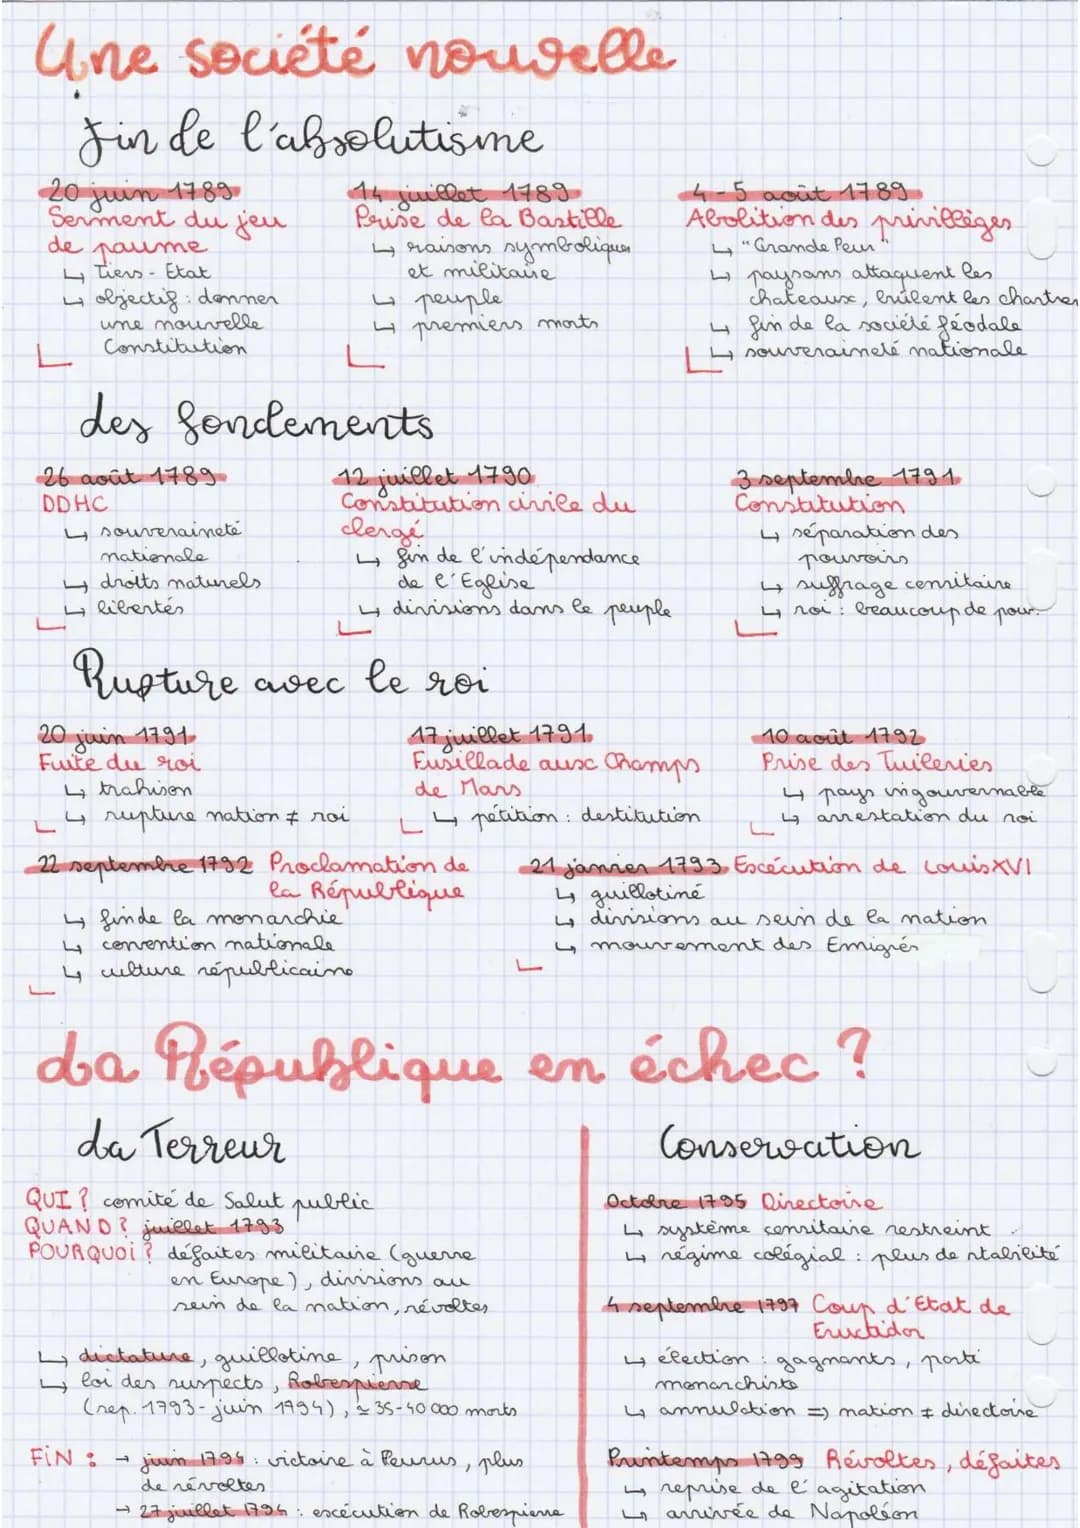 Une société nouvelle
Fin de l'absolutisme
20 juin 1789
Serment du jeu
de paume
↳ Tiers-Etat
↳ objectif : donner
une nouvelle
Constitution
14 juillet 1789
Prise de la Bastille
↳ raisons symboliques
et militaire
↳ peuple
↳ premiers morts
4-5 août 1789
Abolition des privillèges
↳ "Grande Peur"
↳ paysans attaquent les
chateaux, brûlent les chartres
↳ fin de la société féodale
↳ souveraineté nationale
des fondements
26 août 1789
DDHC
↳ souveraineté
nationale
↳ droits naturels
↳ libertés
12 juillet 1790
Constitution civile du
clergé
↳ fin de l'indépendance
de l'Eglise
↳ divisions dans le peuple
3 septembre 1791
Constitution
↳ séparation des
pouvoirs
↳ suffrage censitaire
↳ roi : beaucoup de pouv.
Rupture avec le roi
20 juin 1791
Fuite du roi
↳ trahison
↳ rupture nation ≠ roi
17 juillet 1791
Fusillade aux Champs
de Mars
↳ pétition : destitution
10 août 1792
Prise des Tuileries
↳ pays ingouvernable
↳ arrestation du roi
22 septembre 1792 Proclamation de
la République
↳ fin de la monarchie
↳ convention nationale
↳ culture républicaine
21 janvier 1793 Exécution de Louis XVI
↳ guillotiné
↳ divisions au sein de la nation
↳ mouvement des Emigrés
La République en échec ?
La Terreur
QUI ? comité de Salut public
QUAND ? juillet 1793
POURQUOI ? défaites militaire (guerre
en Europe), divisions au
sein de la nation, révoltes
↳ dictature, guillotine, prison
↳ loi des suspects, Robespierre
(sep. 1793-juin 1794), ≃ 35-40 000 morts
FIN : → juin 1794 : victoire à Fleurus, plus
de révoltes
→ 27 juillet 1794 : exécution de Robespierre
Conservation
Octobre 1795 Directoire
↳ système censitaire restreint
↳ régime colégial : plus de stabilité
4 septembre 1797 Coup d'Etat de
Fructidor
↳ élection : gagnants, parti
monarchiste
↳ annulation => nation ≠ directoire
Printemps 1799 Révoltes, défaites
↳ reprise de l'agitation
↳ arrivée de Napoléon